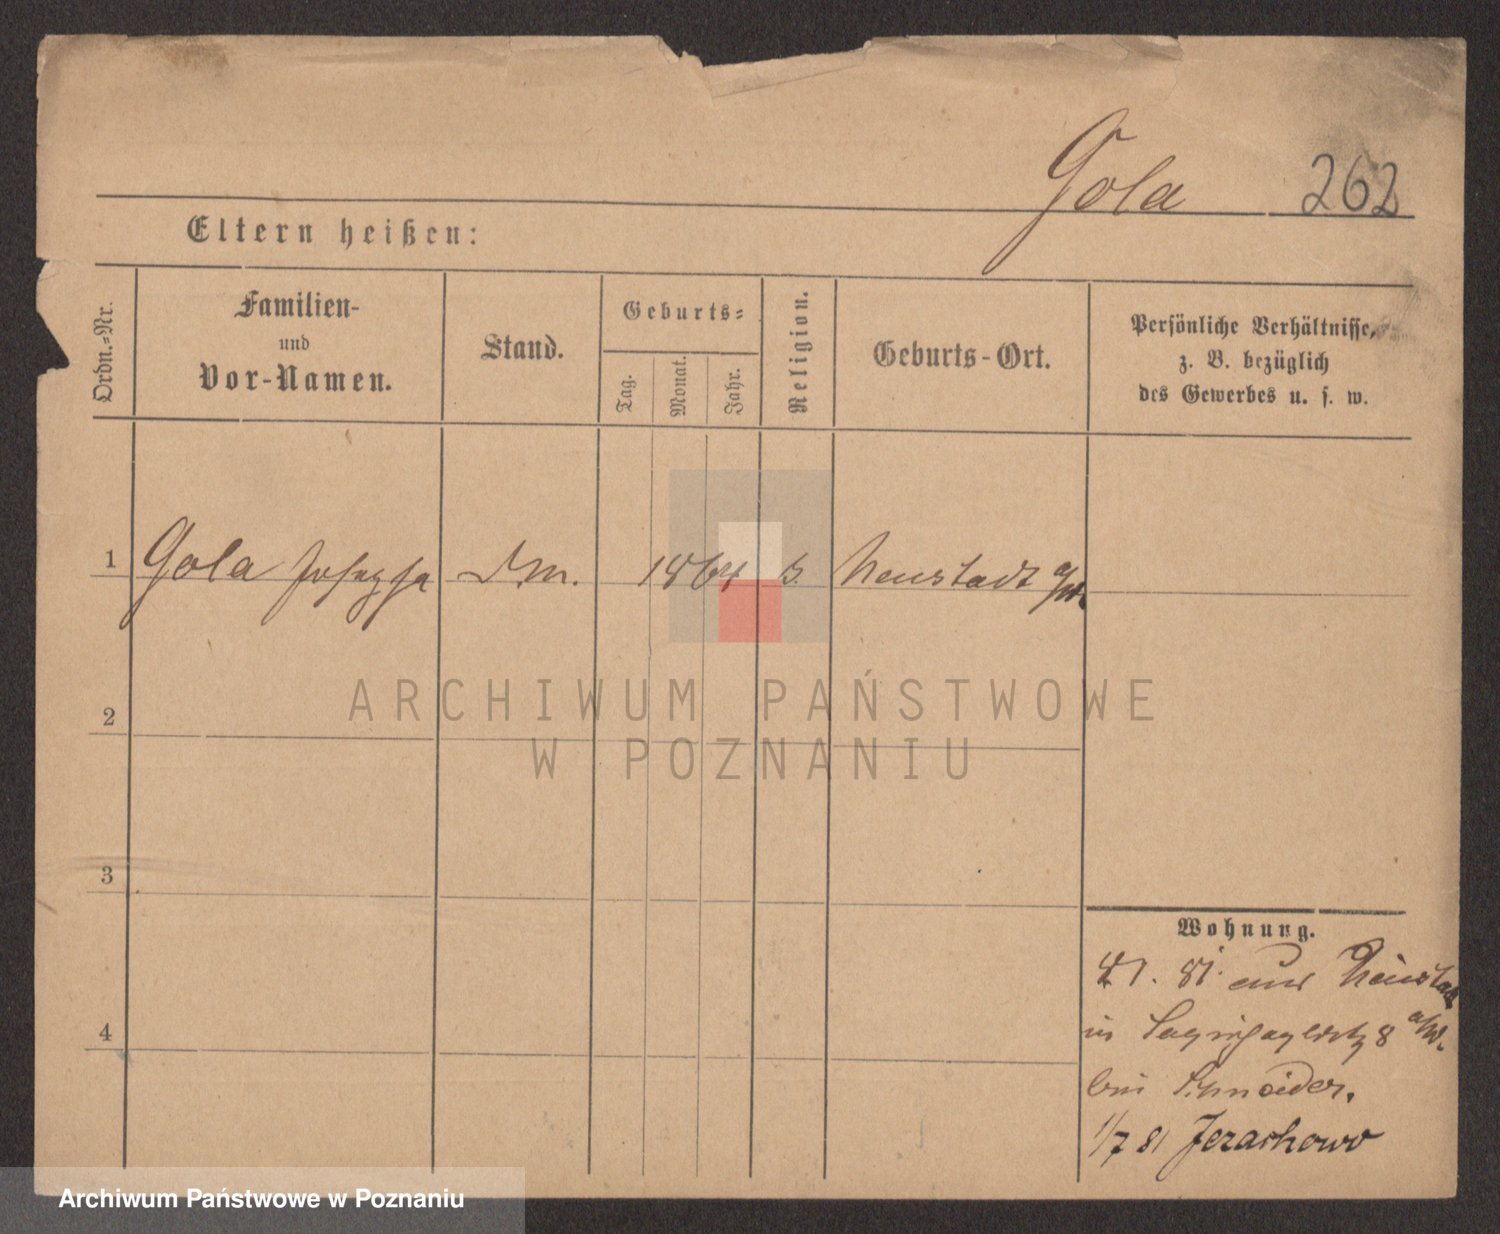 Gola 262
Eltern heißen:
Ordn.-Nr.
Familien-
und
Vor-Namen.
Stand.
Geburts-
Tag.
Monat.
Jahr.
Religion.
Geburts-Ort.
Persönliche Verhältnisse,
z. B. bezüglich
des Gewerbes u. s. w.
1 Gola Josepha DM. 1864 Neustadt
2
3
4
Wohnung.
81. aus Neustadt
in 8 a/W.
bei Schneider.
1/7 81 Jerzachowo
ARCHIWUM PAŃSTWOWE
W POZNANIU
Archiwum Państwowe w Poznaniu